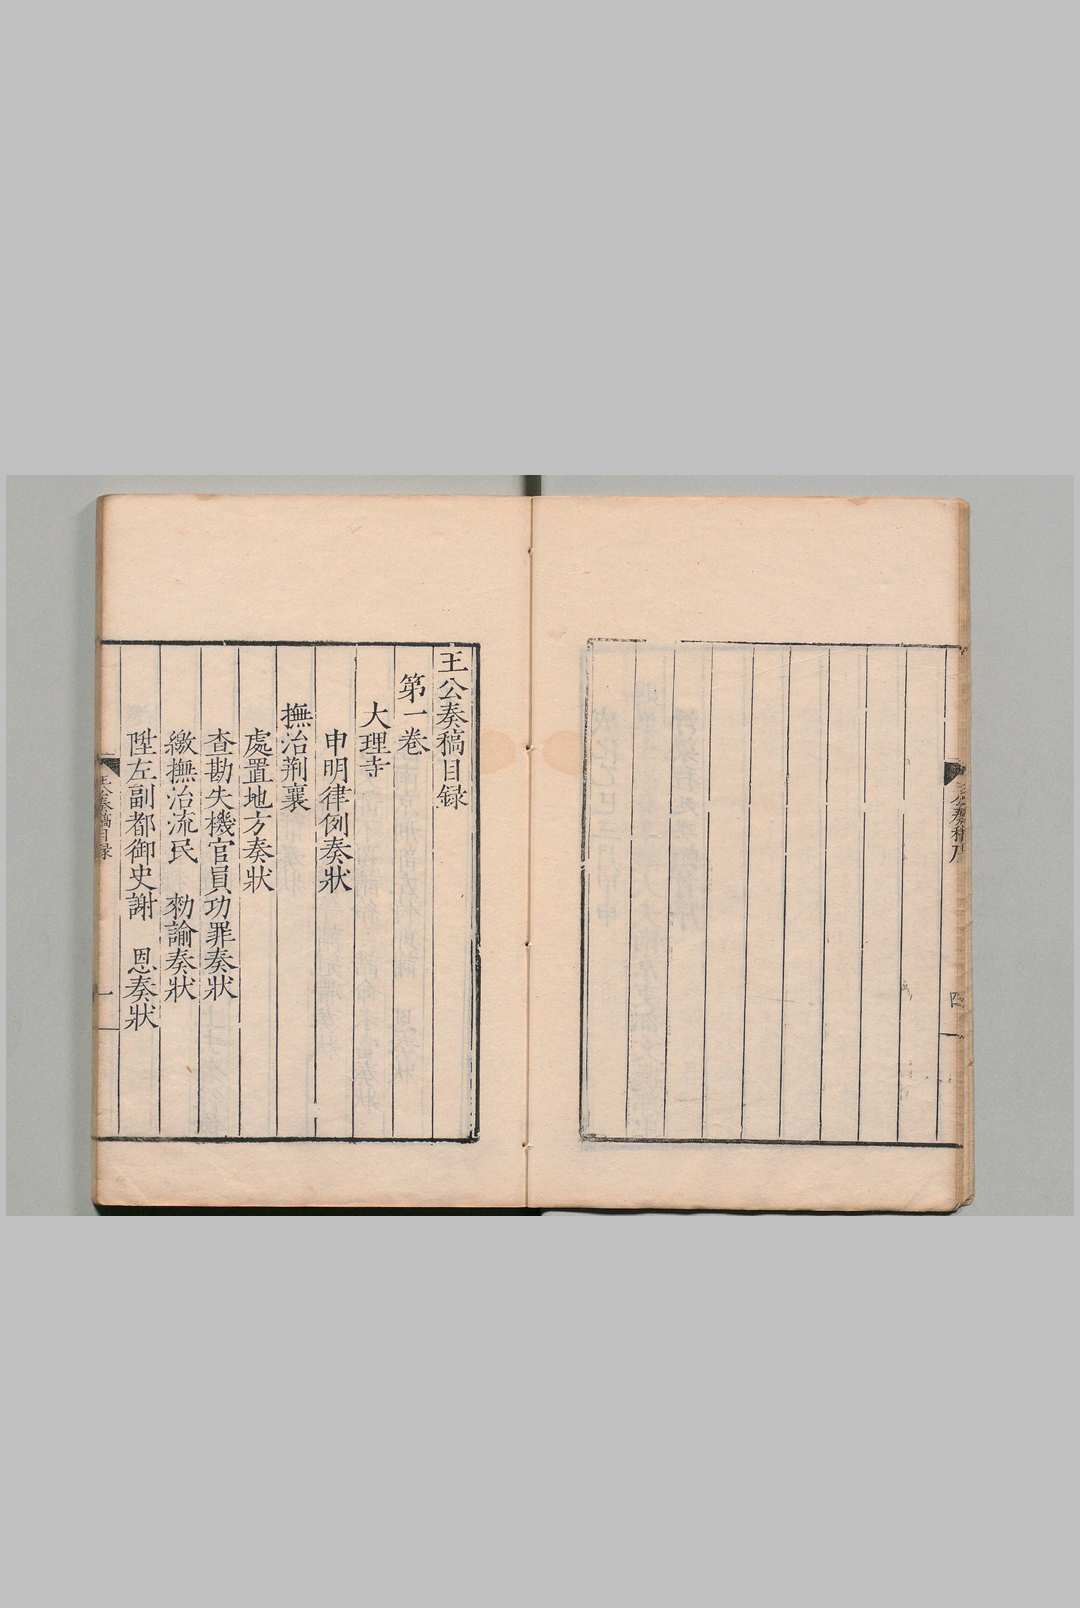 王公奏稿目録
第一卷
大理寺
申明律例奏狀
撫治荆襄
處置地方奏狀
查勘失機官員功罪奏狀
繳撫治流民　勑諭奏狀
陞左副都御史謝　恩奏狀
王公奏稿目録
一
王公奏稿序
四